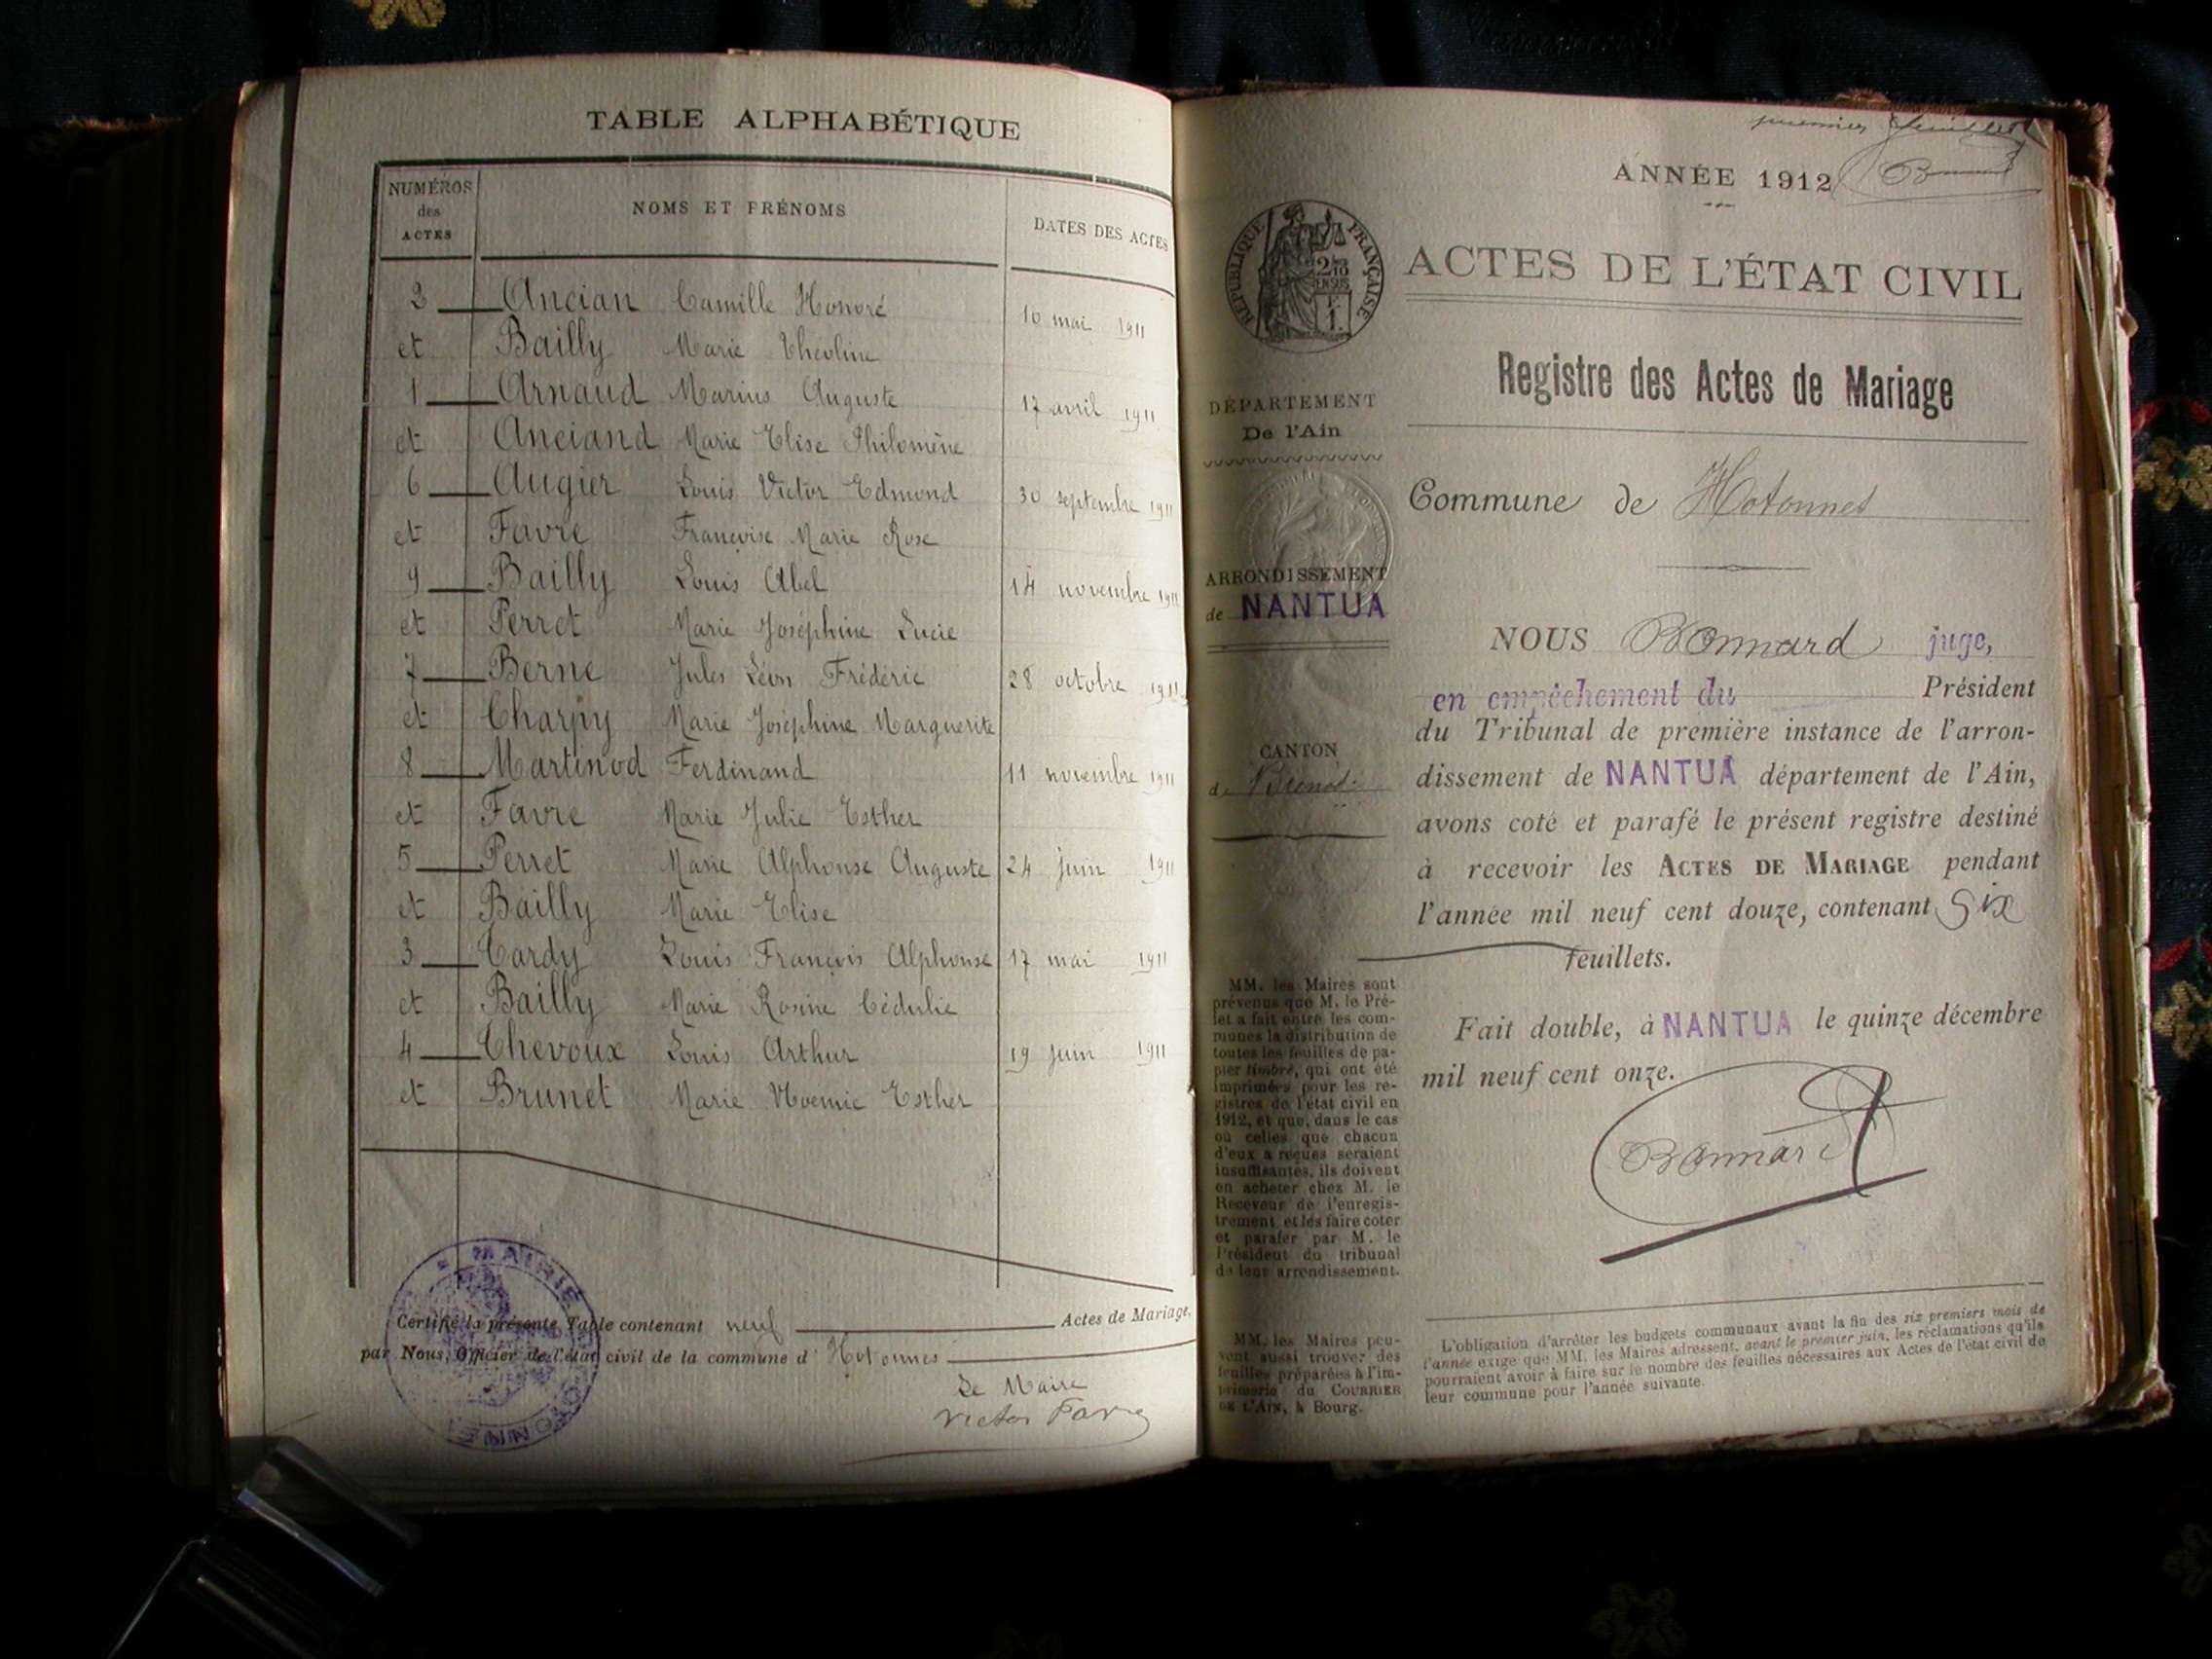 TABLE ALPHABÉTIQUE
NUMÉROS
des
ACTES
NOMS ET PRÉNOMS
DATES DES ACTES
2 Ancian Camille Honoré 10 mai 1911
et Bailly Marie Théoline
1 Arnaud Marius Auguste 17 avril 1911
et Anciand Marie Elise Philomène
6 Augier Louis Victor Edmond 30 septembre 1911
et Favre Françoise Marie Rose
9 Bailly Louis Abel 14 novembre 1911
et Perret Marie Joséphine Lucie
7 Berne Jules Léon Frédéric 28 octobre 1911
et Charpy Marie Joséphine Marguerite
8 Martinod Ferdinand 11 novembre 1911
et Favre Marie Julie Esther
5 Perret Marie Alphonse Auguste 24 juin 1911
et Bailly Marie Elise
3 Tardy Louis François Alphonse 17 mai 1911
et Bailly Marie Rosine Cédulie
4 Chevoux Louis Arthur 19 juin 1911
et Brunet Marie Noemie Esther
MAIRIE
Certifié la présente Table contenant neuf Actes de Mariage,
par Nous, Officier de l'état civil de la commune d' Hotonnes
Le Maire
Victor Favre
premier feuillet
ANNÉE 1912
RÉPUBLIQUE FRANÇAISE
ACTES DE L'ÉTAT CIVIL
Registre des Actes de Mariage
DÉPARTEMENT
De l'Ain
Commune de Hotonnes
ARRONDISSEMENT
de NANTUA
CANTON
de Brenod
NOUS Bonnard juge,
en empêchement du Président
du Tribunal de première instance de l'arron-
dissement de NANTUA département de l'Ain,
avons coté et parafé le présent registre destiné
à recevoir les ACTES DE MARIAGE pendant
l'année mil neuf cent douze, contenant Six
feuillets.
Fait double, à NANTUA le quinze décembre
mil neuf cent onze.
Bonnard
MM. les Maires sont
prévenus que M. le Pré-
fet a fait entre les com-
munes la distribution de
toutes les feuilles de pa-
pier timbré, qui ont été
imprimées pour les re-
gistres de l'état civil en
1912, et que, dans le cas
où celles que chacun
d'eux a reçues seraient
insuffisantes, ils doivent
en acheter chez M. le
Receveur de l'enregis-
trement, et les faire coter
et parafer par M. le
Président du tribunal
de leur arrondissement.
MM. les Maires peu-
vent aussi trouver des
feuilles préparées à l'im-
primerie du COURRIER
DE L'AIN, à Bourg.
L'obligation d'arrêter les budgets communaux avant la fin des six premiers mois de
l'année exige que MM. les Maires adressent, avant le premier juin, les réclamations qu'ils
pourraient avoir à faire sur le nombre des feuilles nécessaires aux Actes de l'état civil de
leur commune pour l'année suivante.